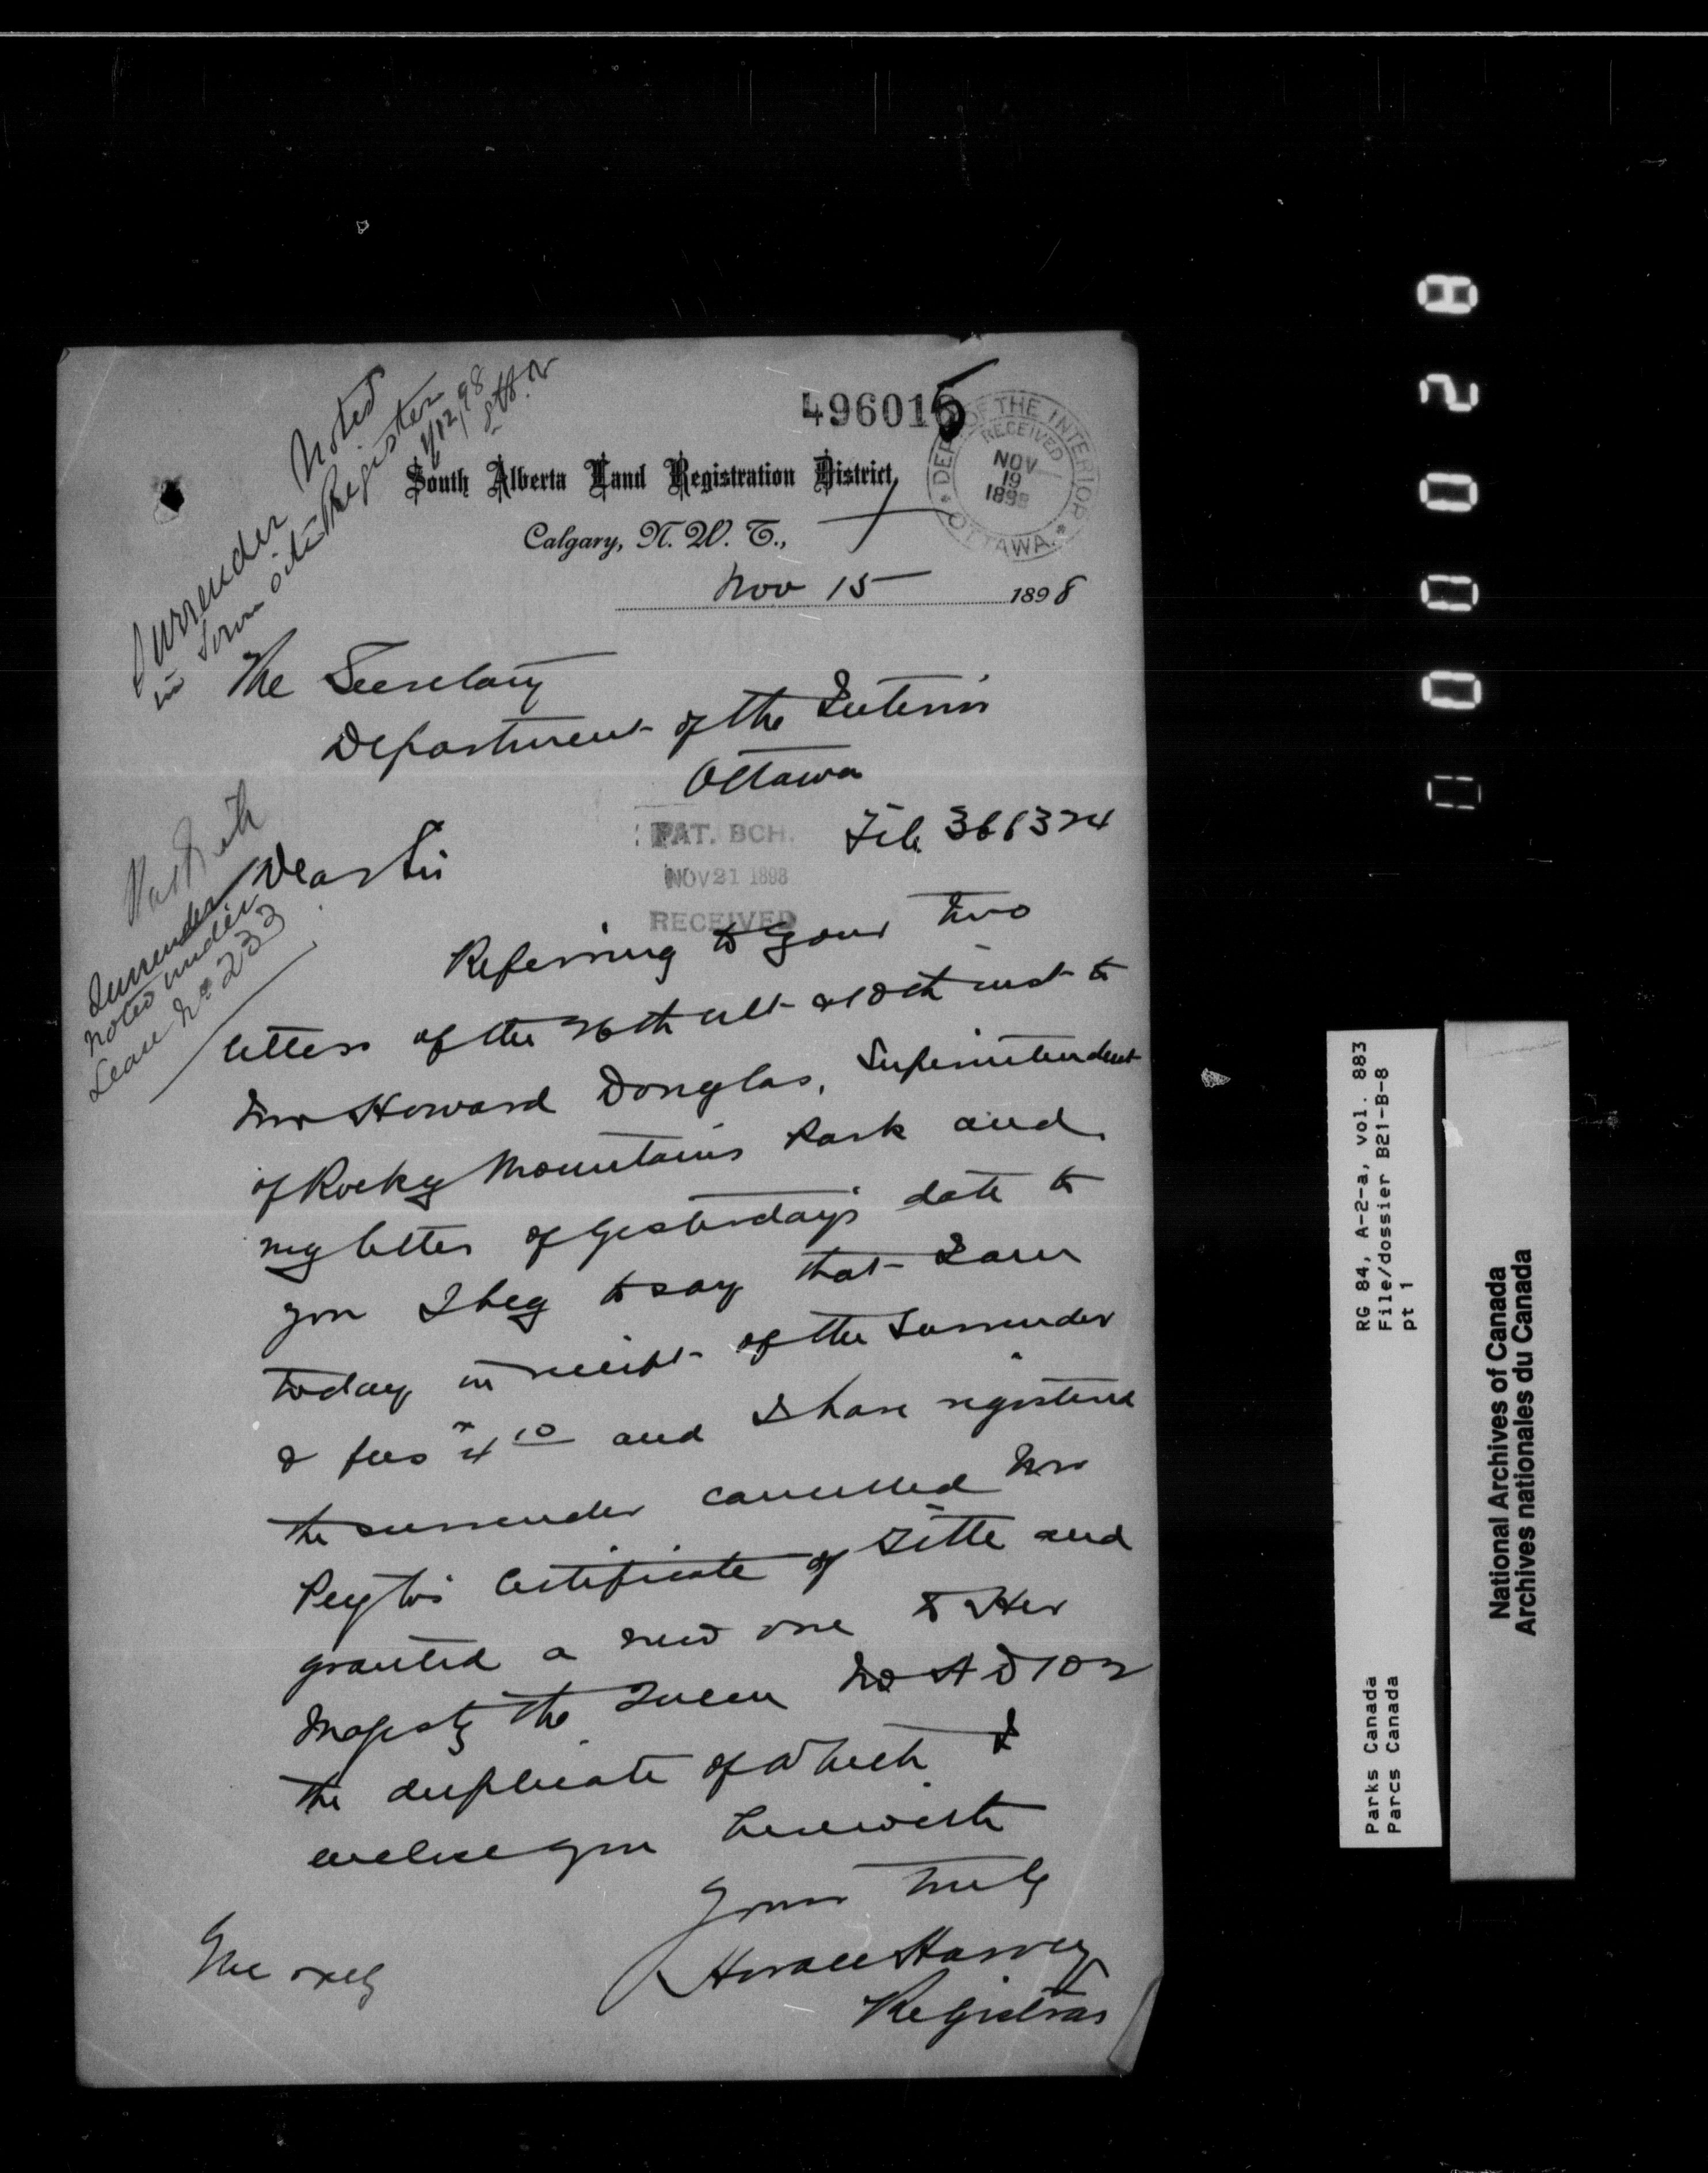 Surrender Noted
in Town site Register
496016
DEPT. OF THE INTERIOR
RECEIVED
NOV
19
1898
OTTAWA
South Alberta Land Registration District,
Calgary, N. W. T.,
Nov 15 1898
The Secretary
Department of the Interior
Ottawa
PAT. BCH.
NOV 21 1898
RECEIVED
File
Dear Sir
Surrender
noted under
Lease No 233
Referring to your two
letters of the 26th ult & 10th inst to
Mr Howard Douglas, Superintendent
of Rocky Mountains Park and
my letter of yesterday's date to
you I beg to say that I am
today in receipt of the Surrender
& fees $4 10 and I have registered
the surrender cancelled Mr
Peyto's Certificate of Title and
granted a new one to Her
Majesty the Queen No A D 102
the duplicate of which I
enclose you herewith
Yours truly
Horace Harvey
Registrar
00002H
RG 84, A-2-a, vol. 883
File/dossier B21-B-8
pt 1
Parks Canada
Parcs Canada
National Archives of Canada
Archives nationales du Canada